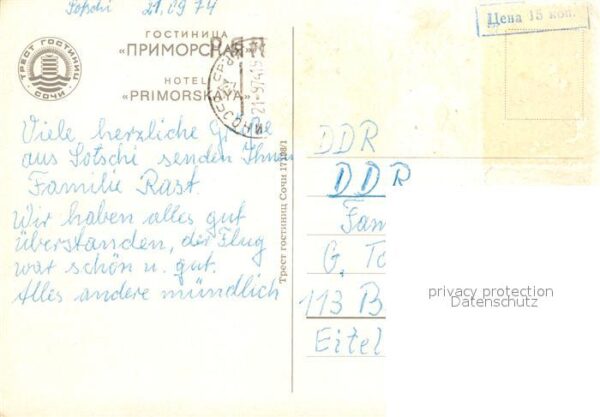 Sotschi 21.09.74
ГОСТИНИЦА
«ПРИМОРСКАЯ»
HOTEL
«PRIMORSKAYA»
ТРЕСТ ГОСТИНИЦ
СОЧИ
Цена 15 коп.
21-9741
Viele herzliche Grüße
aus Sotschi senden Ihnen
Familie Rast.
Wir haben alles gut
überstanden, der Flug
war schön u. gut.
Alles andere mündlich
Трест гостиниц Сочи
DDR
DDR
Fam
G. To
113 B
Eitel
privacy protection
Datenschutz